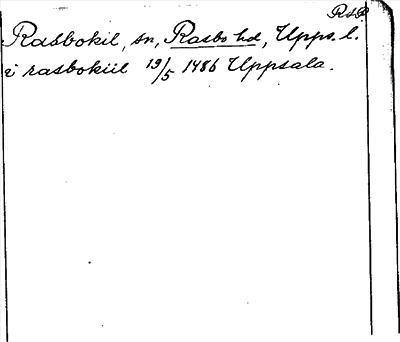 Rasbokil, sn, Rasbo hd, Upps. l.
i rasbokiil 19/5 1486 Uppsala.